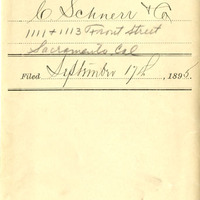 C Schnerr & Co
1111 & 1113 Front Street
Sacramento, Cal
Filed September 17th, 1895